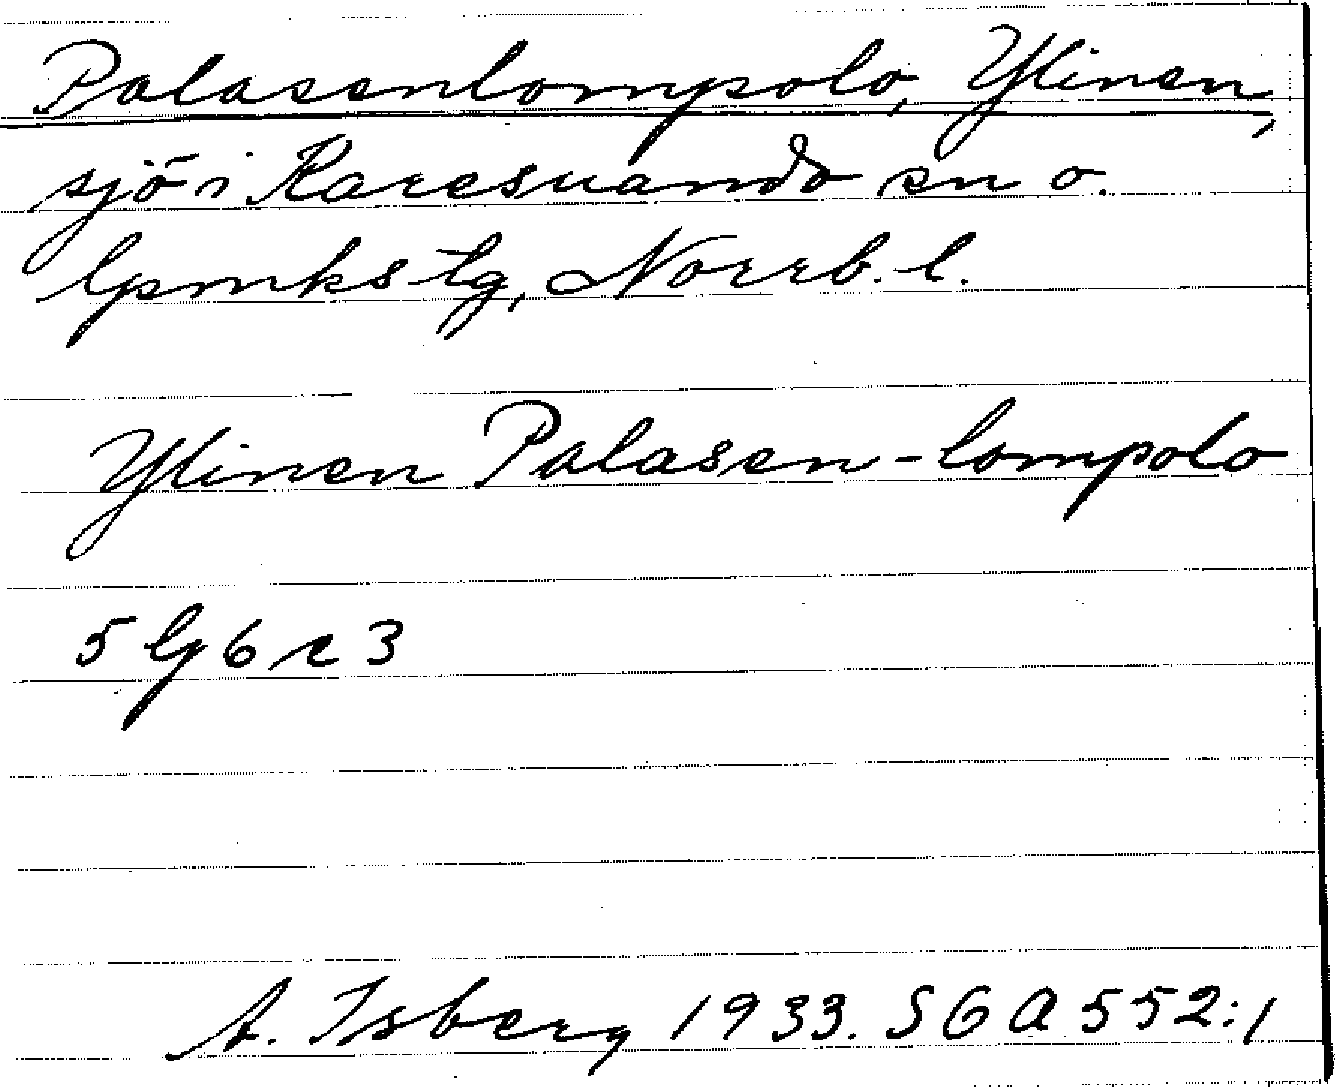 Palasenlompolo, Ylinen,
sjö i Karesuando sn o.
lpmks tg, Norrb. l.
Ylinen Palasen-lompolo
5 g 6 c 3
A. Isberg 1933. SGA 552:1